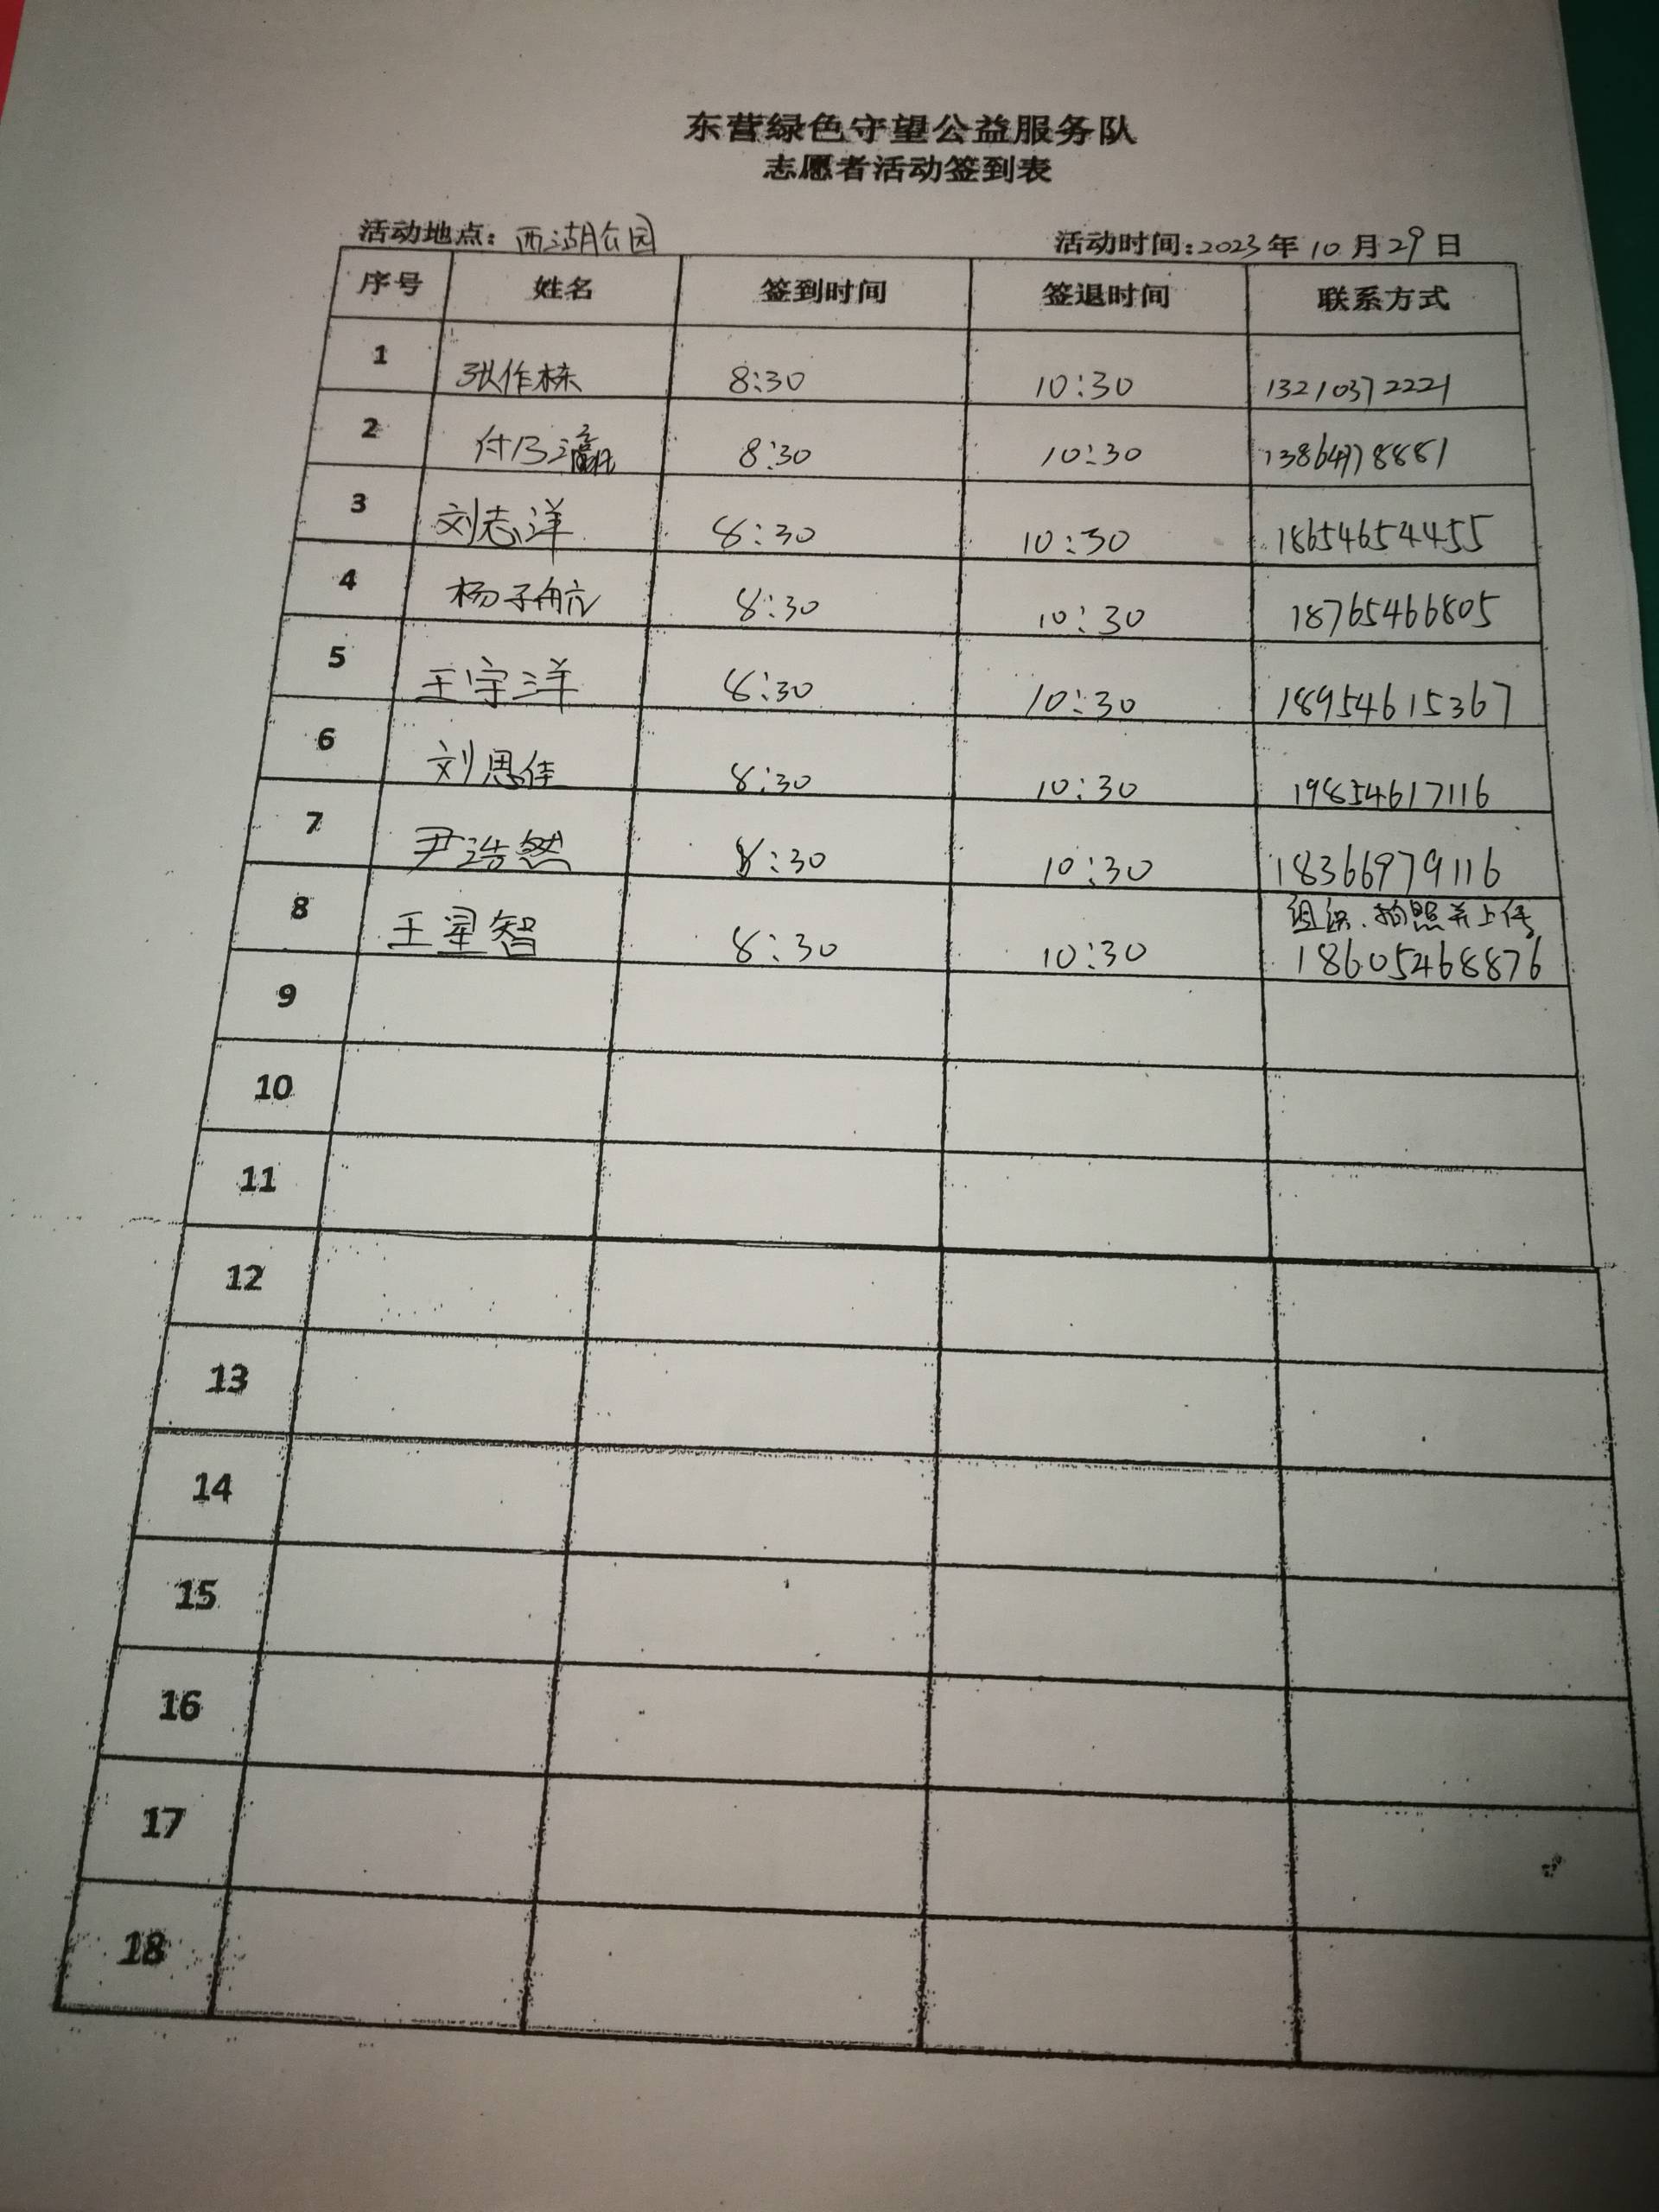 东营绿色守望公益服务队
志愿者活动签到表
活动地点：西湖公园 活动时间：2023年10月29日
序号 姓名 签到时间 签退时间 联系方式
1 张作栋 8:30 10:30 13210372221
2 付乃瀛 8:30 10:30
3 刘志洋 8:30 10:30 18654654455
4 杨子航 8:30 10:30 18765466805
5 王宇洋 8:30 10:30 18954615367
6 刘思佳 8:30 10:30 19854617116
7 尹浩然 8:30 10:30 18366979116
组织、拍照并上传
8 王星智 8:30 10:30 18605468876
9
10
11
12
13
14
15
16
17
18